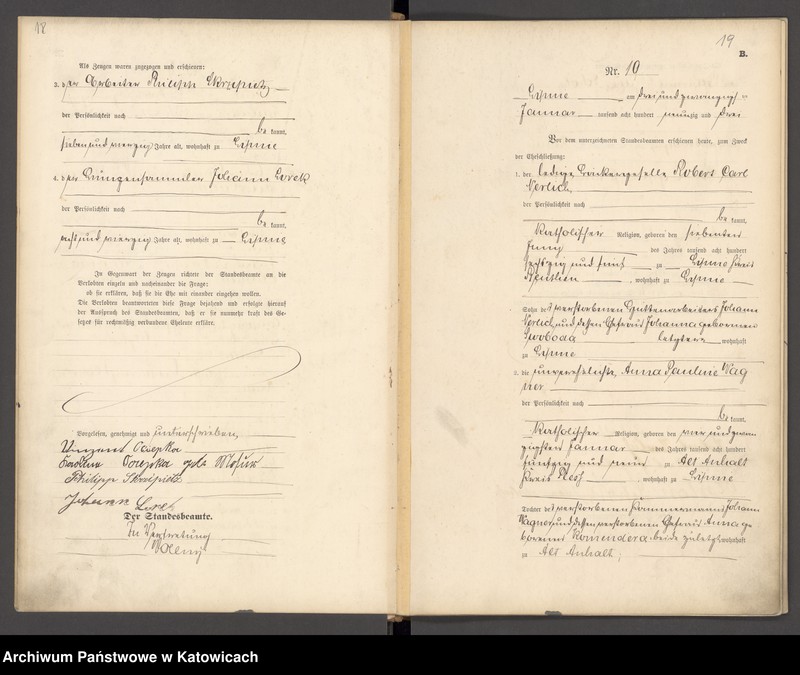 18
Als Zeugen waren zugezogen und erschienen:
3. der Arbeiter Philipp Skrzipietz
der Persönlichkeit nach
be kannt,
sieben und vierzig Jahre alt, wohnhaft zu Lipine
4. der Johann Lorek
der Persönlichkeit nach
be kannt,
acht und vierzig Jahre alt, wohnhaft zu Lipine
In Gegenwart der Zeugen richtete der Standesbeamte an die
Verlobten einzeln und nacheinander die Frage:
ob sie erklären, daß sie die Ehe mit einander eingehen wollen.
Die Verlobten beantworteten diese Frage bejahend und erfolgte hierauf
der Ausspruch des Standesbeamten, daß er sie nunmehr kraft des Ge-
setzes für rechtmäßig verbundene Eheleute erkläre.
Vorgelesen, genehmigt und unterschrieben,
Vinzent
Philipp
Johann Lorek
Der Standesbeamte.
In Vertretung
19
B.
Nr. 10
Lipine am drei und zwanzigsten
Januar tausend acht hundert neunzig und drei
Vor dem unterzeichneten Standesbeamten erschienen heute, zum Zweck
der Eheschließung:
1. der ledige Robert Carl
der Persönlichkeit nach
be kannt,
Katholischer Religion, geboren den siebenten
des Jahres tausend acht hundert
sechszig und fünf zu Lipine Kreis
Beuthen, wohnhaft zu Lipine
Sohn des verstorbenen Hüttenarbeiters Johann
und dessen Ehefrau Johanna geborenen
Swoboda letztere wohnhaft
zu Lipine
2. die unverehelichte Anna Pauline Wag
ner
der Persönlichkeit nach
be kannt,
Katholischer Religion, geboren den vier und zwan
zigsten Januar des Jahres tausend acht hundert
fünfzig und neun zu Alt Anhalt
Kreis Pless, wohnhaft zu Lipine
Tochter des verstorbenen Johann
Wagner und dessen verstorbenen Ehefrau Anna ge
borenen Komendera beide zuletzt wohnhaft
zu Alt Anhalt;
Archiwum Państwowe w Katowicach